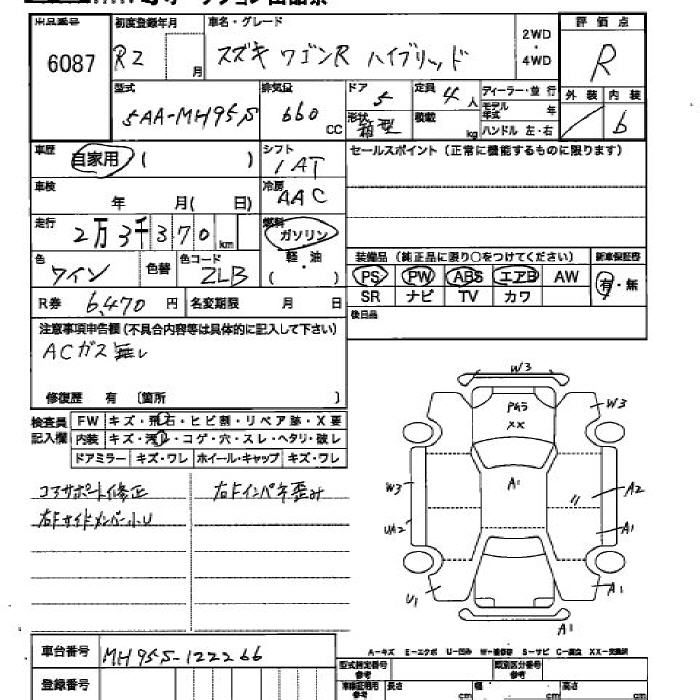 出品番号 初度登録年月 車名・グレード 2WD 評価点
6087 R2 月 スズキ ワゴンR ハイブリッド ・ 4WD R
型式 排気量 ドア 定員 ディーラー・並行 外装 内装
5AA-MH95S 660 CC 5 4人 モデル年式 年 b
形状 箱型 積載 kg ハンドル 左・右
車歴 自家用 ( ) シフト IAT セールスポイント (正常に機能するものに限ります)
車検 年 月( 日) 冷房 AAC
走行 2万3千370 km 燃料 ガソリン
軽・油
( )
色 ワイン 色替 色コード ZLB
装備品 (純正品に限り○をつけてください) 新車保証書
PS PW ABS エアB AW 有・無
SR ナビ TV カワ
R券 6,470 円 名変期限 月 日
後日品
注意事項申告欄 (不具合内容等は具体的に記入して下さい)
ACガス無し
修復歴 有 〔箇所 〕
検査員記入欄 FW キズ・飛石・ヒビ割・リペア跡・X要
内装 キズ・汚レ・コゲ・穴・スレ・ヘタリ・破レ
ドアミラー キズ・ワレ ホイール・キャップ キズ・ワレ
コアサポート修正 右Fインパネ歪み
右Fサイドメンバー小U
W3
PG3
XX
W3
A1
W3
A2
UA2
A1
U1
A1
A1
A-キズ E-エクボ U-凹み W-補修跡 S-サビ C-腐食 XX-交換済
車台番号 MH95S-122266
型式指定番号 類別区分番号
登録番号
車検証用参考 長さ cm 幅 cm 高さ cm